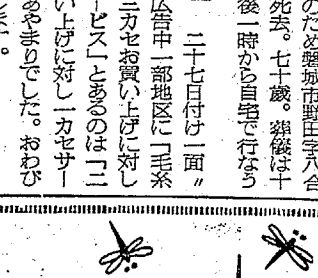 のため磐城市野田字八合
死去。七十歳。葬儀は十
後一時から自宅で行なう
二十七日付け一面〃
広告中一部地区に「毛糸
ニカセお買い上げに対し
ービス」とあるのは「二
い上げに対し一カセサー
あやまりでした。おわび
します。